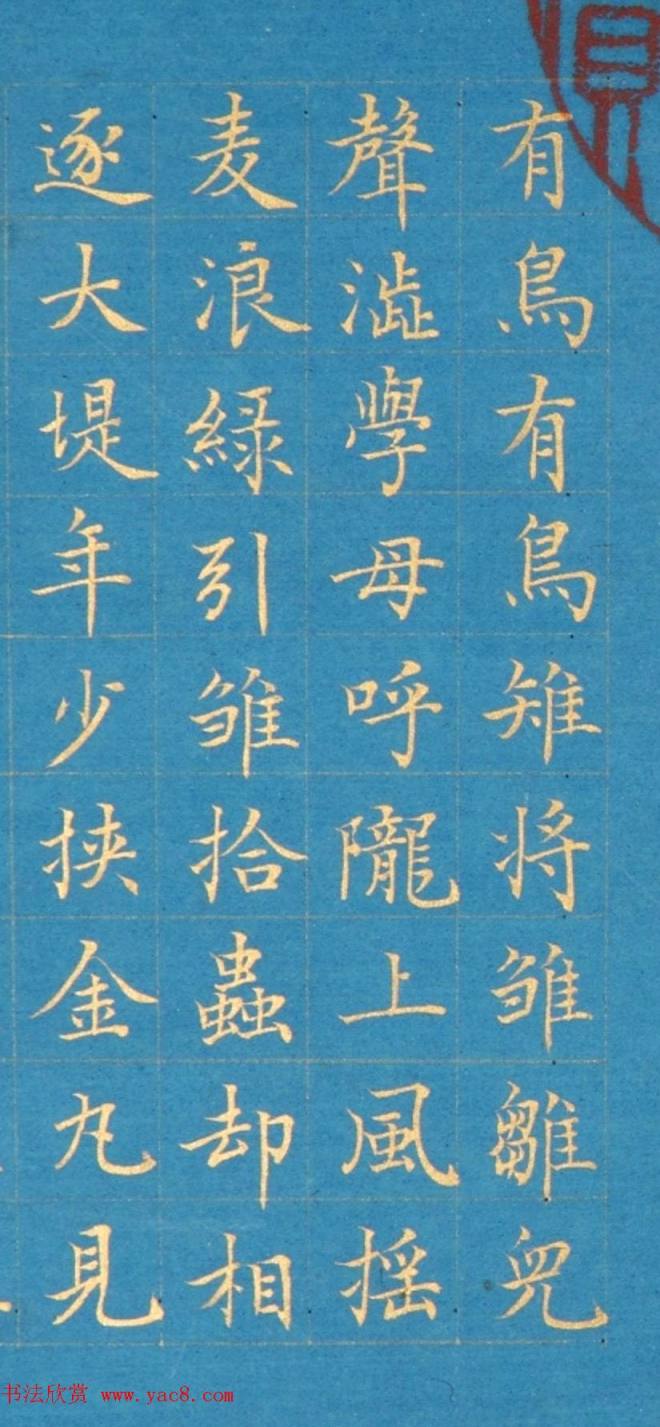 有鳥有鳥雉将雏雛兒
聲澁學母呼隴上風摇
麦浪緑引雏拾蟲却相
逐大堤年少挟金丸見
书法欣赏 www.yac8.com